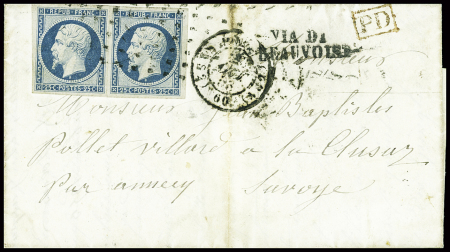 REPUB. FRANC. REPUB. FRANC.
25 C. POSTES 25 C. 25 C. POSTES 25 C.
VIA DI
BEAUVOISIN
PD
(60)
Monsieur
Monsieur Jean Baptiste
Pollet Villard a la Clusaz
par annecy Savoye